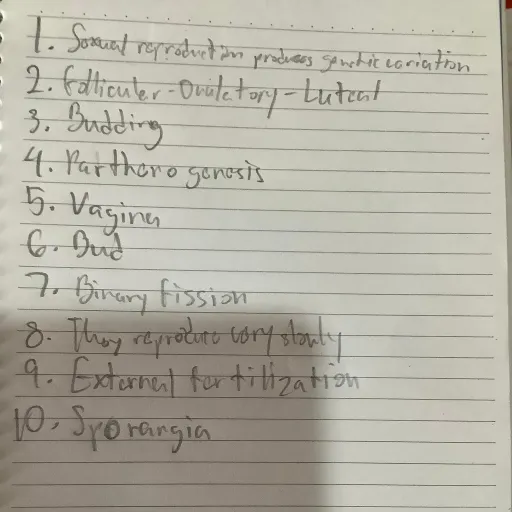 1. Sexual reproduction produces genetic variation
2. Follicular-Ovulatory-Luteal
3. Budding
4. Parthenogenesis
5. Vagina
6. Bud
7. Binary fission
8. They reproduce very slowly
9. External fertilization
10. Sporangia